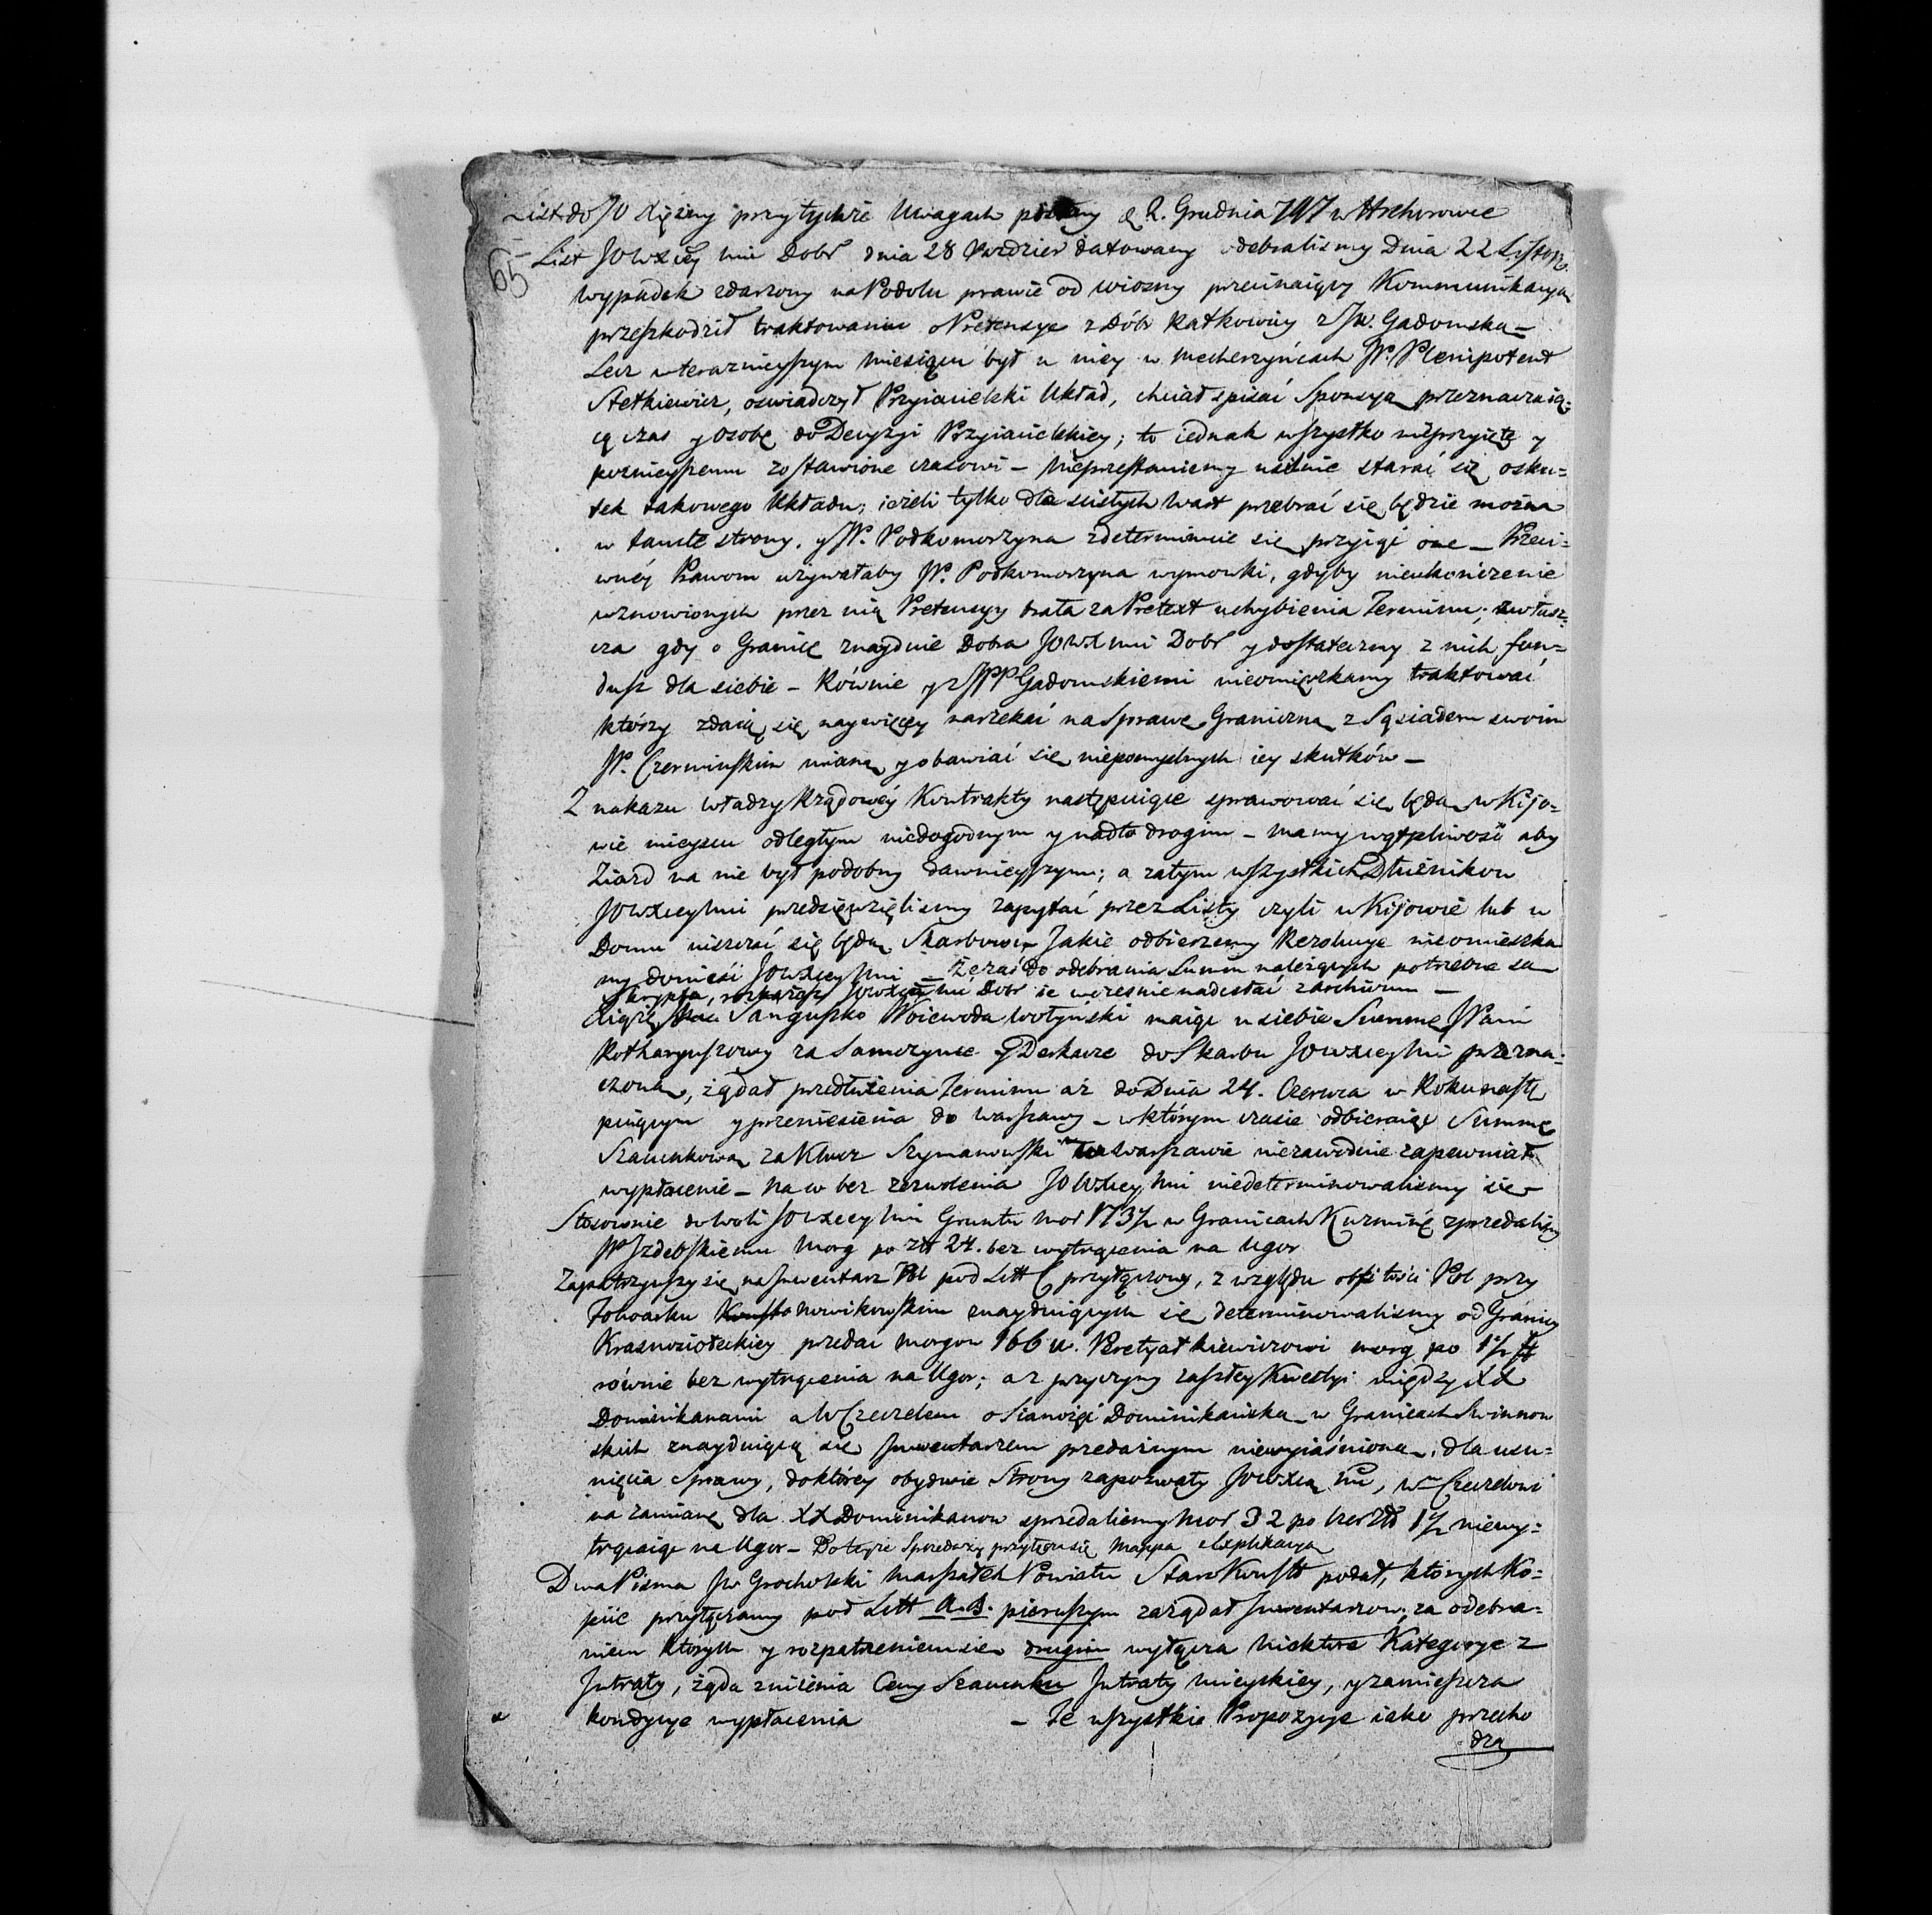 List do JO Xiężny przy tychże Uwagach posłany d. 2. Grudnia 797 w
65
List JOWXcey Mci Dobr dnia 28 Pazdzier datowany odebralismy Dnia 22 Listop.
Wypadek zdarzony na Podolu prawie od wiosny przecinaiący Kommunikacyą
przeszkodził traktowaniu o Pretensye z Dóbr Ratkowicy z JW. Gadomską –
Lecz w teraznieyszym Miesiącu był u niey w Mecherzyńcach JP. Plenipotent
Stetkiewicz, oswiadczył Przyiacielski Układ, chciał spisać Sponsyą przeznaczaią-
cą czas y osobę do Decyzyi Przyiacielskiey; to iednak wszystko nieprzyięte y
poznieyszemu zostawione czasowi – Nieprzestaniemy usilnie starać się o sku-
tek takowego Układu; ieżeli tylko dla scisłych Wart przebrać się będzie można
w tamte strony. y JP. Podkomorzyna zdeterminuie się przyiąć one – Przeci-
wnéy Prawom używałaby JP. Podkomorzyna wymowki, gdyby nieukończenie
wznowionych przez nią Pretensyy brała za Pretext uchybienia Terminu; zwłasz-
cza gdy o Granicę znayduie Dobra JOWX Mci Dobr y dostateczny z nich fun-
dusz dla siebie – Równie y z JPP Gadomskiemi nieomięszkamy traktować
którzy zdaią się naywięcy narzekać na Sprawę Graniczną z Sąsiadem swoim
JP. Czerwińskim mianą y obawiać się niepomyslnych iey skutków –
Z nakazu Władzy Rządowéy Kontrakty następuiące sprawować się będą w Kijo-
wie mieyscu odległym niedogodnym y nadto drogim – Mamy wątpliwość aby
Ziazd na nie był podobny dawnieyszym; a zatym wszystkich Dłużnikow
JOWXcey Mci przedsięwzięlismy zapytać przez Listy czyli w Kijowie lub w
Domu uiszczać się będą Skarbowi Jakie odbierzemy Rezolucye nieomieszka
my donieść JOWXcey Mci – Że zaś do odebrania Summ należących potrzebne są
Skrypta, rozkażesz JOWXca Mć Dobr ie wczesnie nadesłać z Archiwum –
Xiążę Sanguszko Woiewoda Wołyński maiąc u siebie Summę JPani
Rotharyuszowey za Samczynce y Deskowce do Skarbu JOWXcey Mci przezna-
czoną, żądał przedłużenia Terminu aż do Dnia 24. Czerwca w Roku nastę
puiącym y przeniesienia do Warszawy – w którym czasie odbieraiąc Summę
Szacunkową za Klucz Szymanowski w Warszawie niezawodnie zapewniał
wypłacenie – Na co bez zezwolenia JOWXcey Mci niedeterminowalismy się
Stosownie do Woli JOWXcey Mci Gruntu Mor 173½ w Granicach Kuzminę zprzedalismy
JP Jzdebskiemu Morg po Złł 24. bez wytrącenia na Ugor
Zapatrzywszy się na Inwentarz Pol pod Litt C przyłączony, z względu obfitości Pol przy
Folwarku Nowikowskim znayduiących się determinowalismy od Granicy
Krasnosiołeckiey przedać Morgow 166 u. morg po 1½
równie bez wytrącenia na Ugor; a z przyczyny zaszłey Kwestyi między XX
Dominikanami a W Czeczelem o Sianożęć Dominikańską w Granicach
skich znayduiącą się Inwentarzem przedażnym niewyiaśnioną, dla usu-
nięcia Sprawy, do którey obydwie Strony zapozwały JOWXcą Mć, Wmu Czeczelowi
na zamianę dla XX Dominikanow sprzedalismy Mor 32 po 1½ niewy-
trącaiąc na Ugor – Do tegoż Sprzedaży przyłącza się Mappa Explikacya
Dwa Pisma JW Grocholski Marszałek Powiatu StaroKonstt podał, których Ko-
piie przyłączamy pod Litt A. B. pierwszym zażądał Inwentarzow, za odebra-
niem ktorych y rozpatrzeniem się drugim wyłącza Niektóre Kategorye z
Jntraty, żąda zniżenia Ceny Szacunku Jntraty Mieyskiey, y zamieszcza
kondycye wypłacenia – Te wszystkie Propozycye iako przecho
dzą